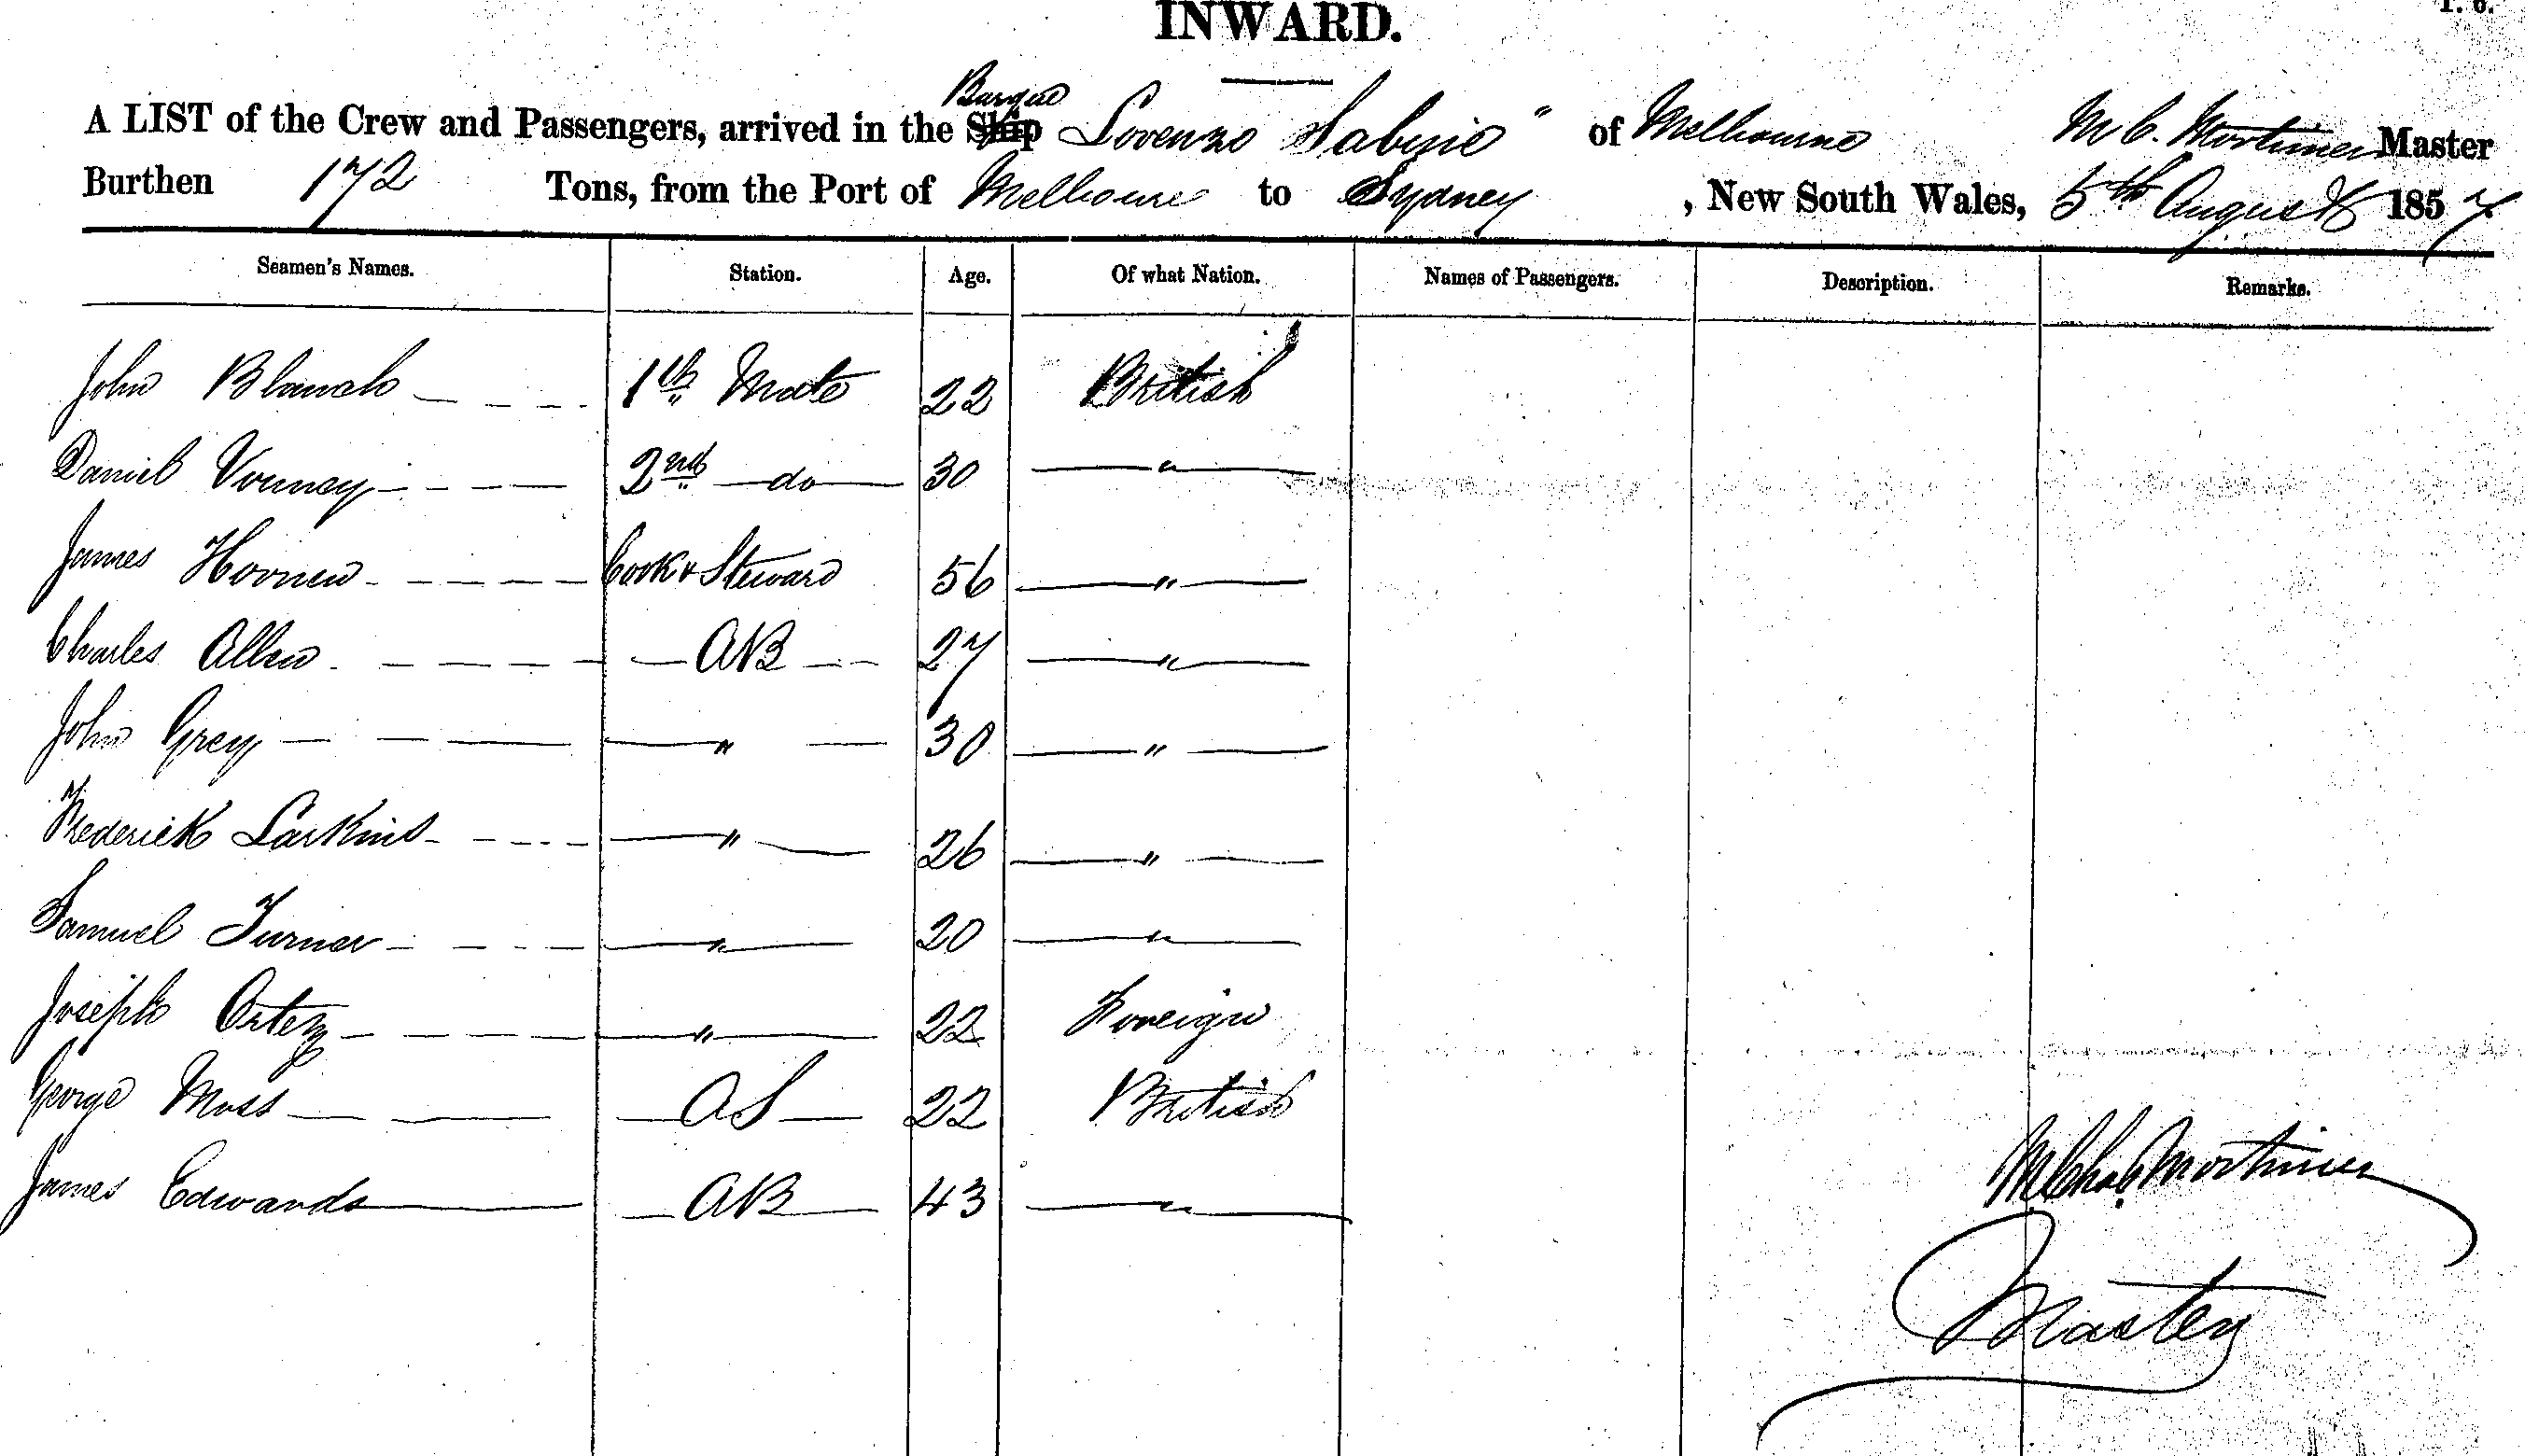 INWARD.
Barque
A LIST of the Crew and Passengers, arrived in the Ship Lorenzo Sabine" of Melbourne M C. Mortimer Master
Burthen 172 Tons, from the Port of Melbourne to Sydney, New South Wales, 5th August 1857
Seamen's Names. Station. Age. Of what Nation. Names of Passengers. Description. Remarks.
John Blanch 1th Mate 22 British
Daniel 2nd do 30 "
James Cook & Steward 56 "
Charles Allen AB 27 "
John Grey " 30 "
Frederick Larkins " 26 "
Samuel Turner " 20 "
Joseph Ortez " 22 Foreign
George Moss OS 22 British
James Edwards AB 43 "
M Chas. Mortimer
Master